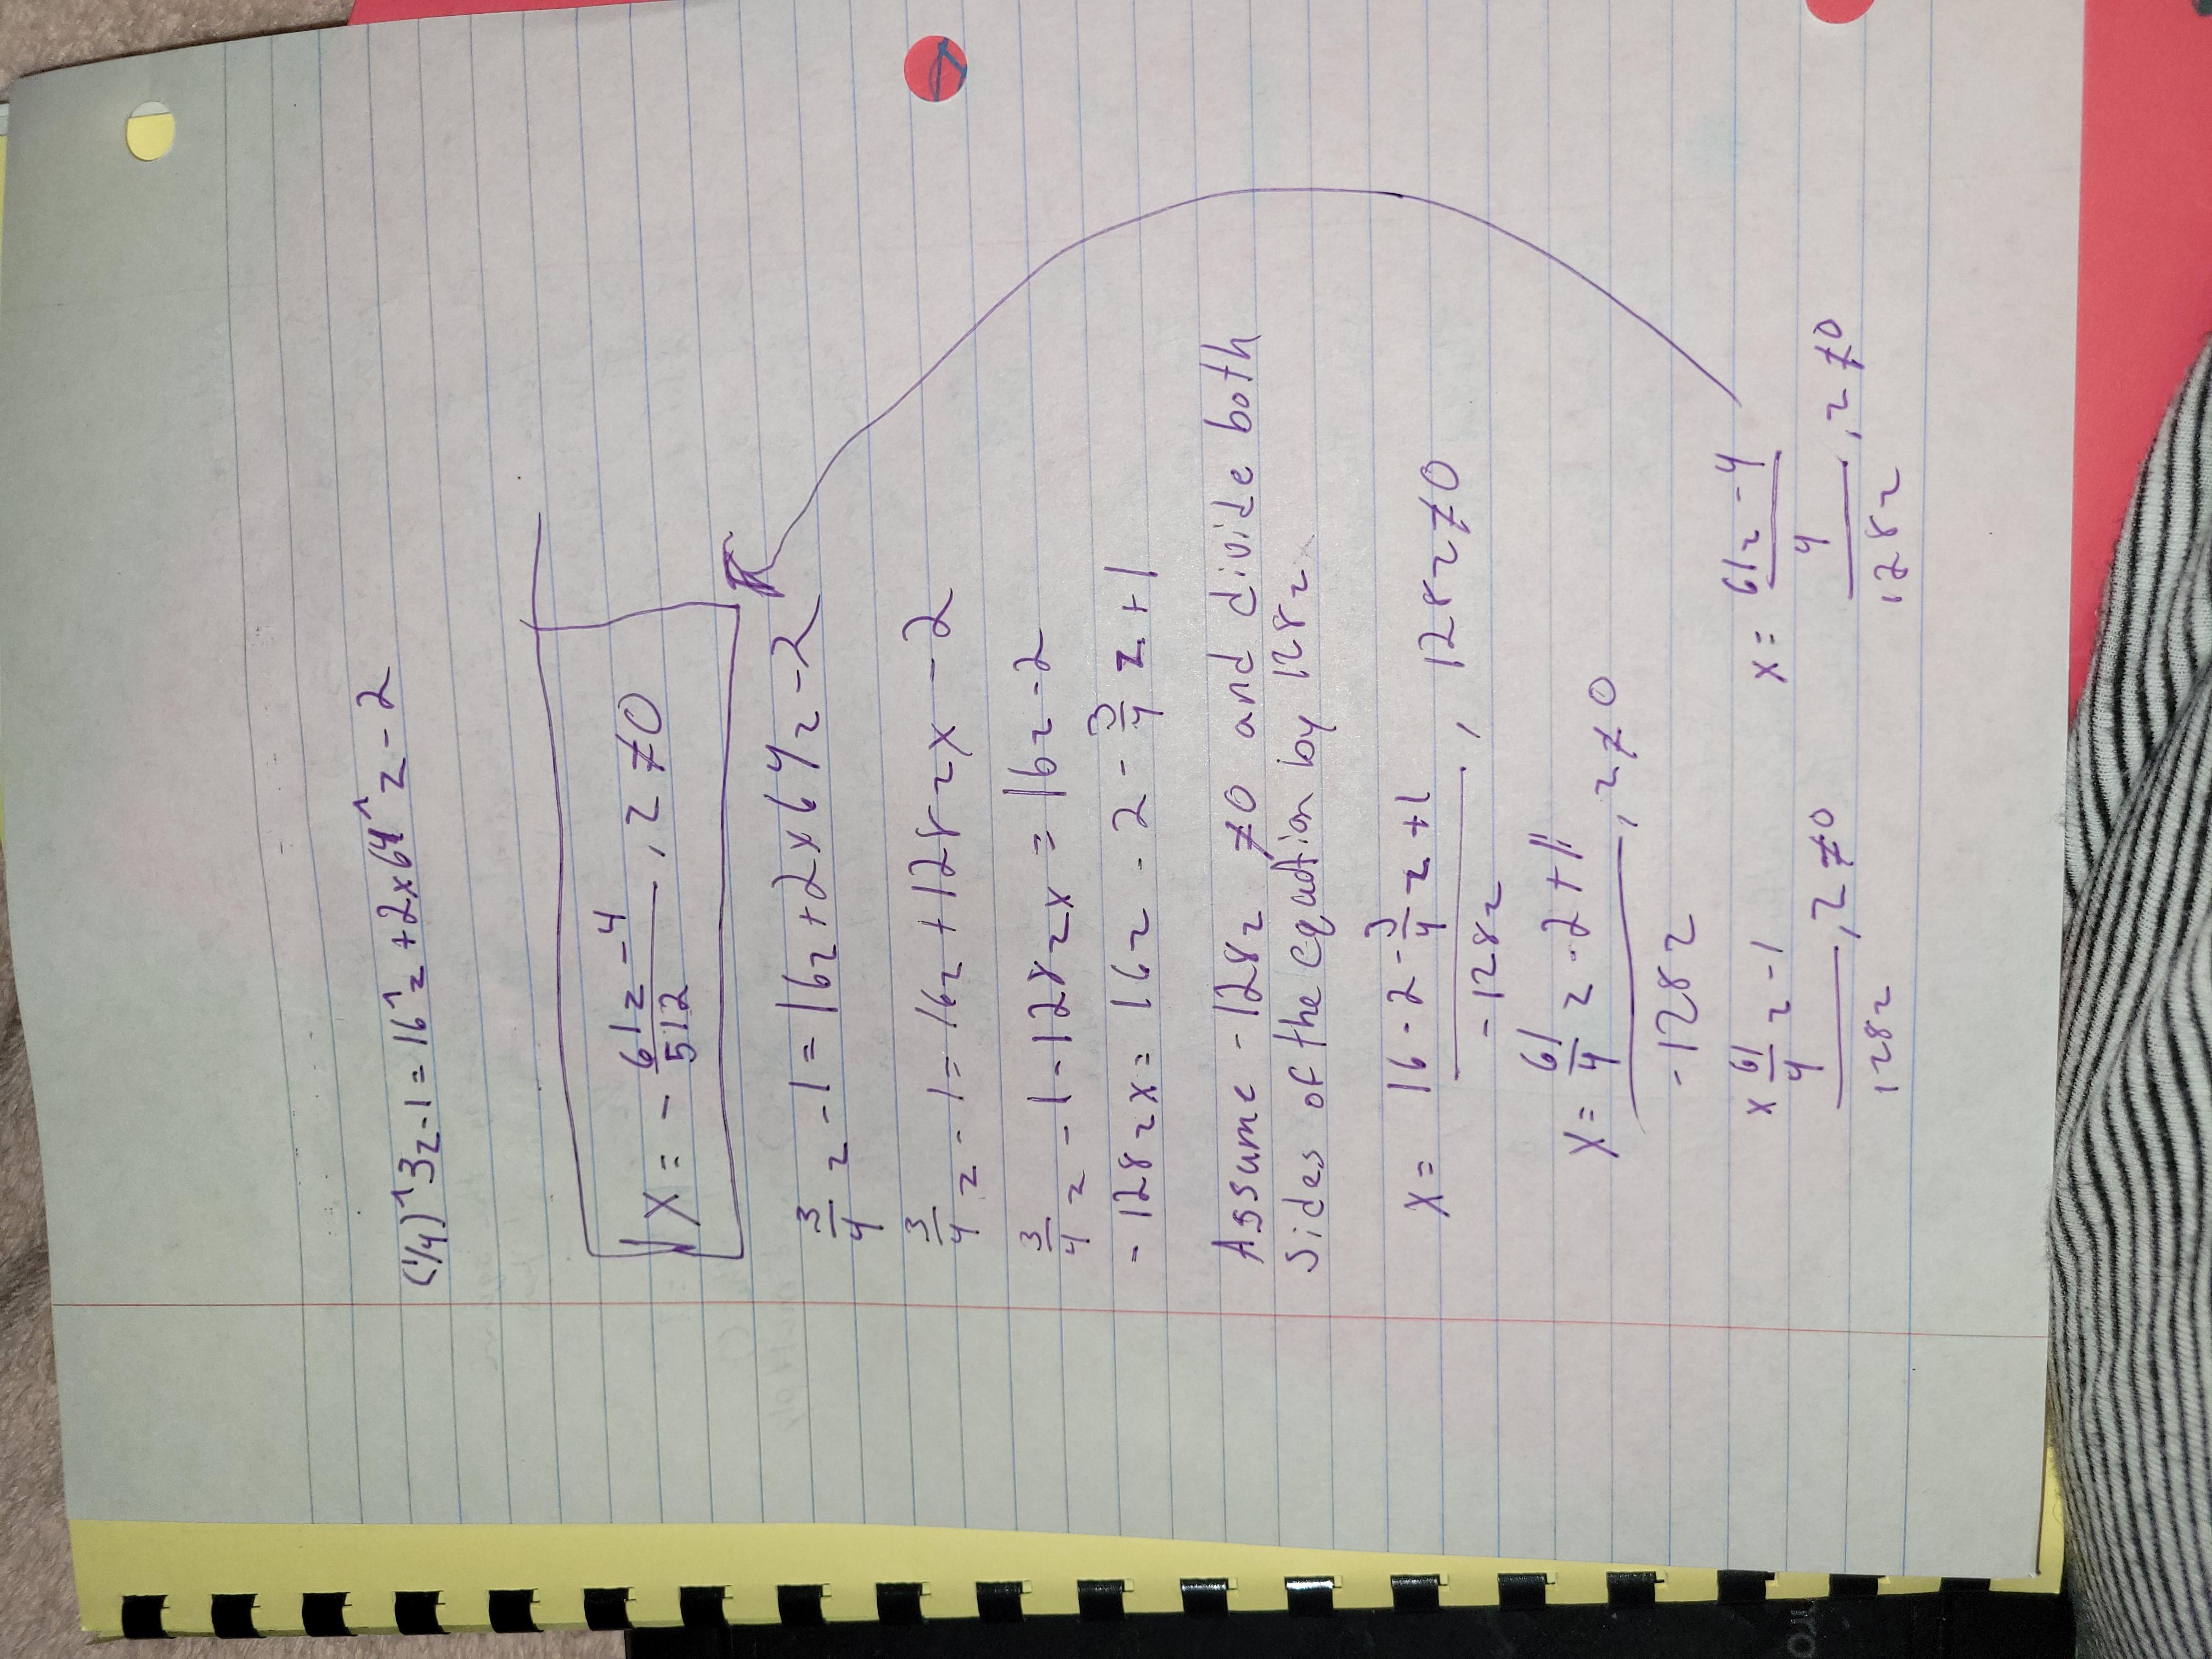 (1/4)^3z-1=16^z+2x64^z-2
x = - 61z-4/512 , z ≠0
3/4 z -1=16z+2x64z-2
3/4 z -1=16z+128zx-2
3/4 z -1-128zx=16z-2
-128zx=16z-2-3/4 z+1
Assume -128z ≠0 and divide both
sides of the equation by 128z
x= 16-2-3/4 z+1/-128z , 128z≠0
x= 61/4 z-2+1/-128z , z≠0
x 61/4 z-1/128z , z≠0 x= 61z-4/4/128z , z≠0